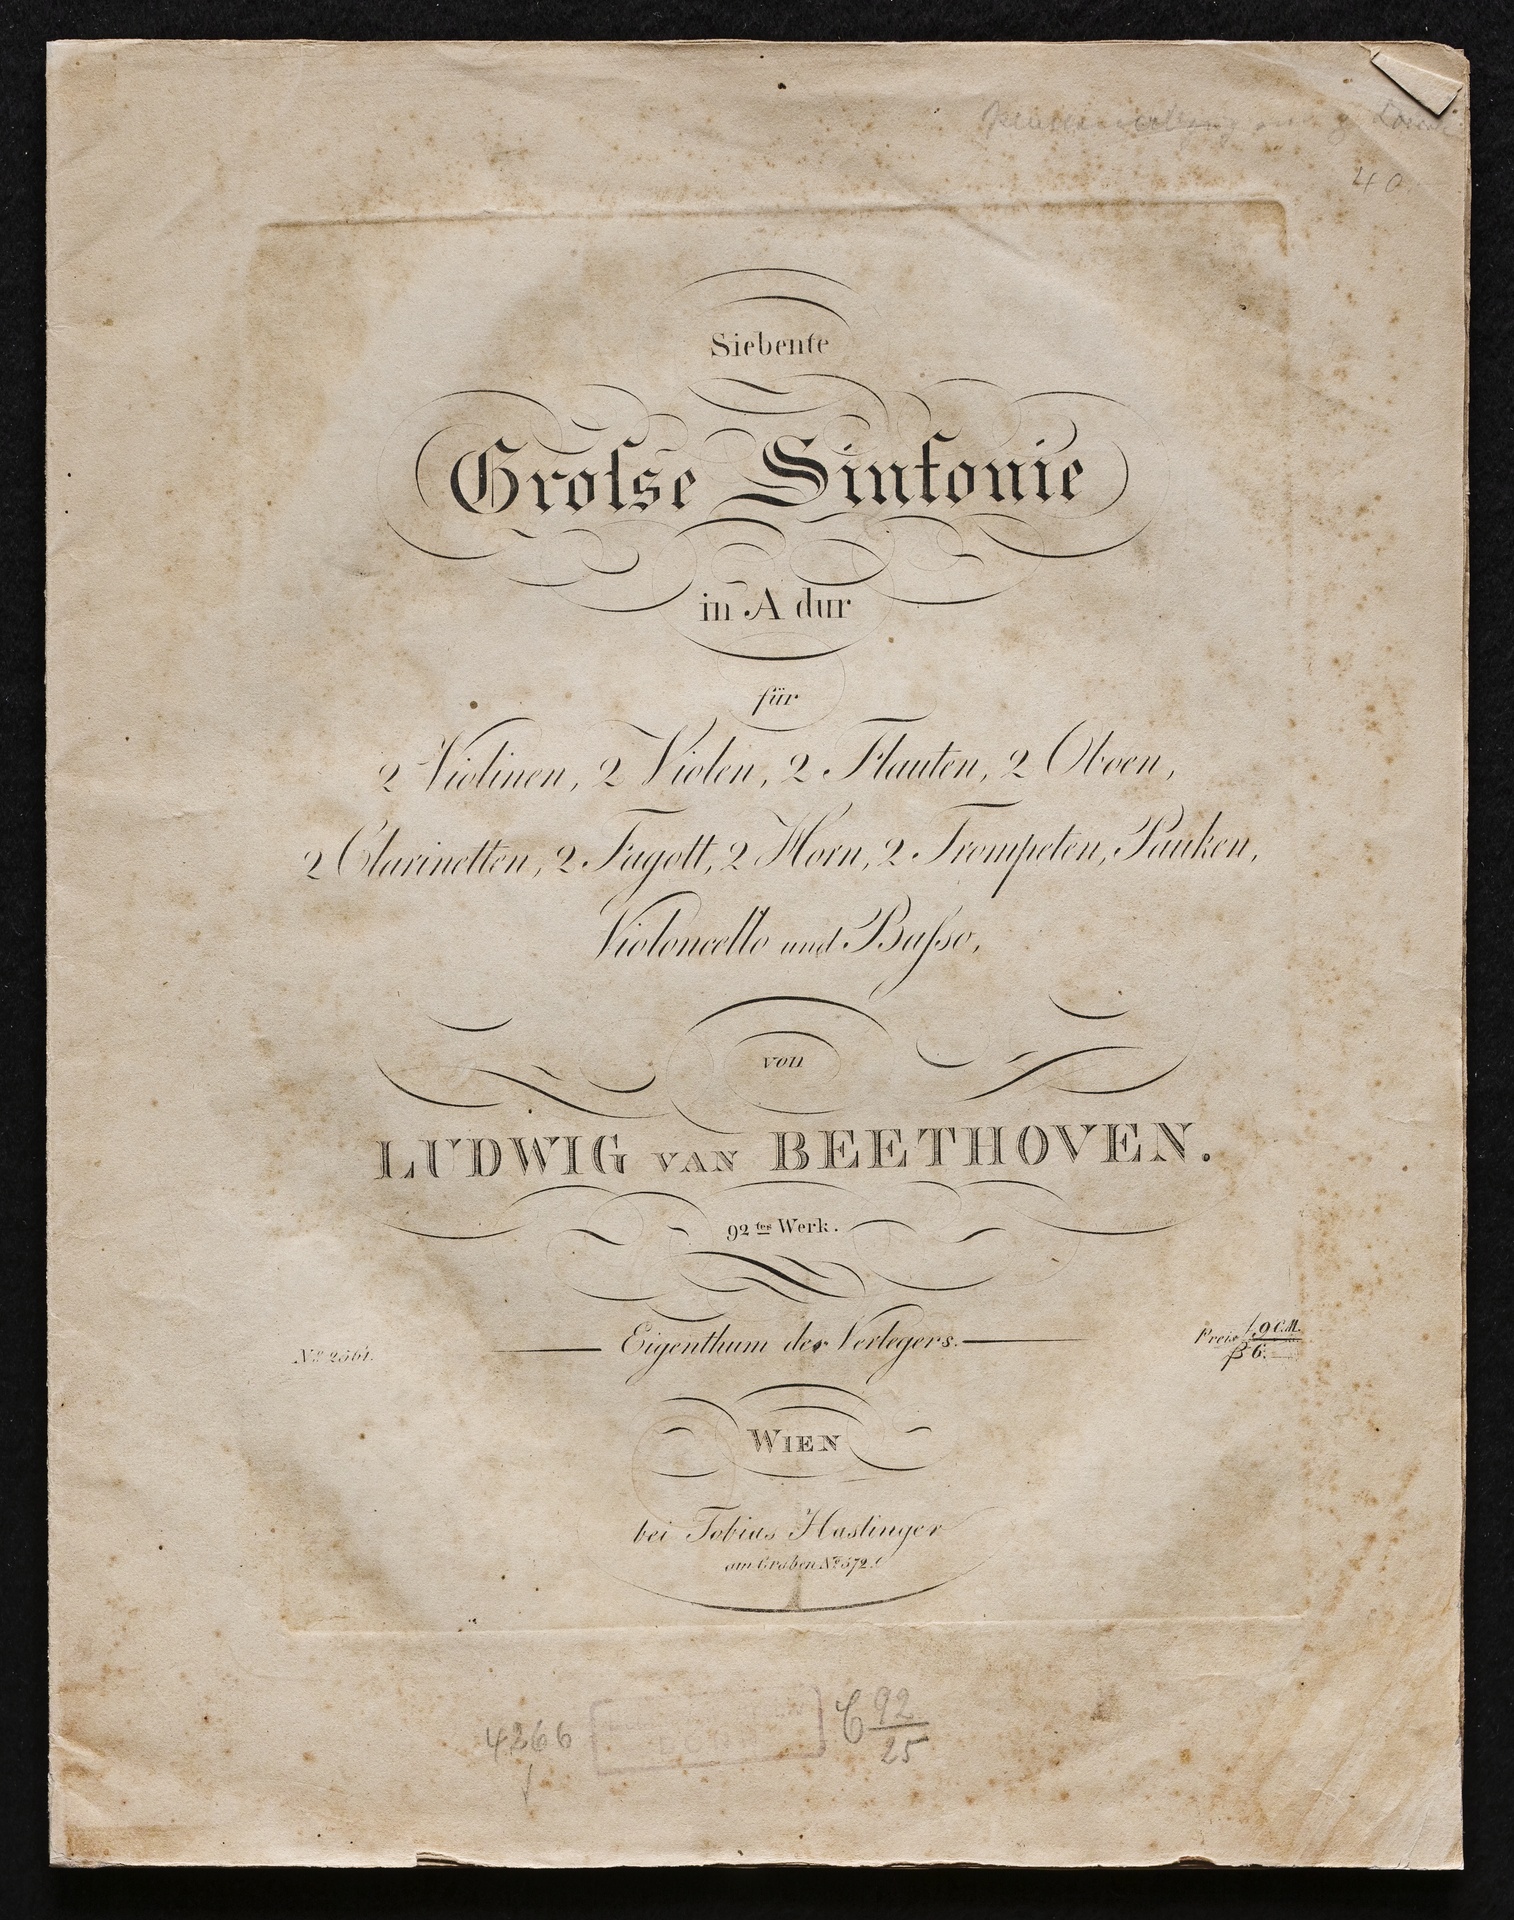 40
Siebente
Groſse Sinfonie
in A dur
für
2 Violinen, 2 Violen, 2 Flauten, 2 Oboen,
2 Clarinetten, 2 Fagott, 2 Horn, 2 Trompeten, Pauken,
Violoncello und Baſso,
von
LUDWIG VAN BEETHOVEN.
92tes Werk.
Nº 2561. Eigenthum des Verlegers. Preis f. 9 C.M.
6.
WIEN
bei Tobias Haslinger
am Graben Nº 572.
4266 C 92
25